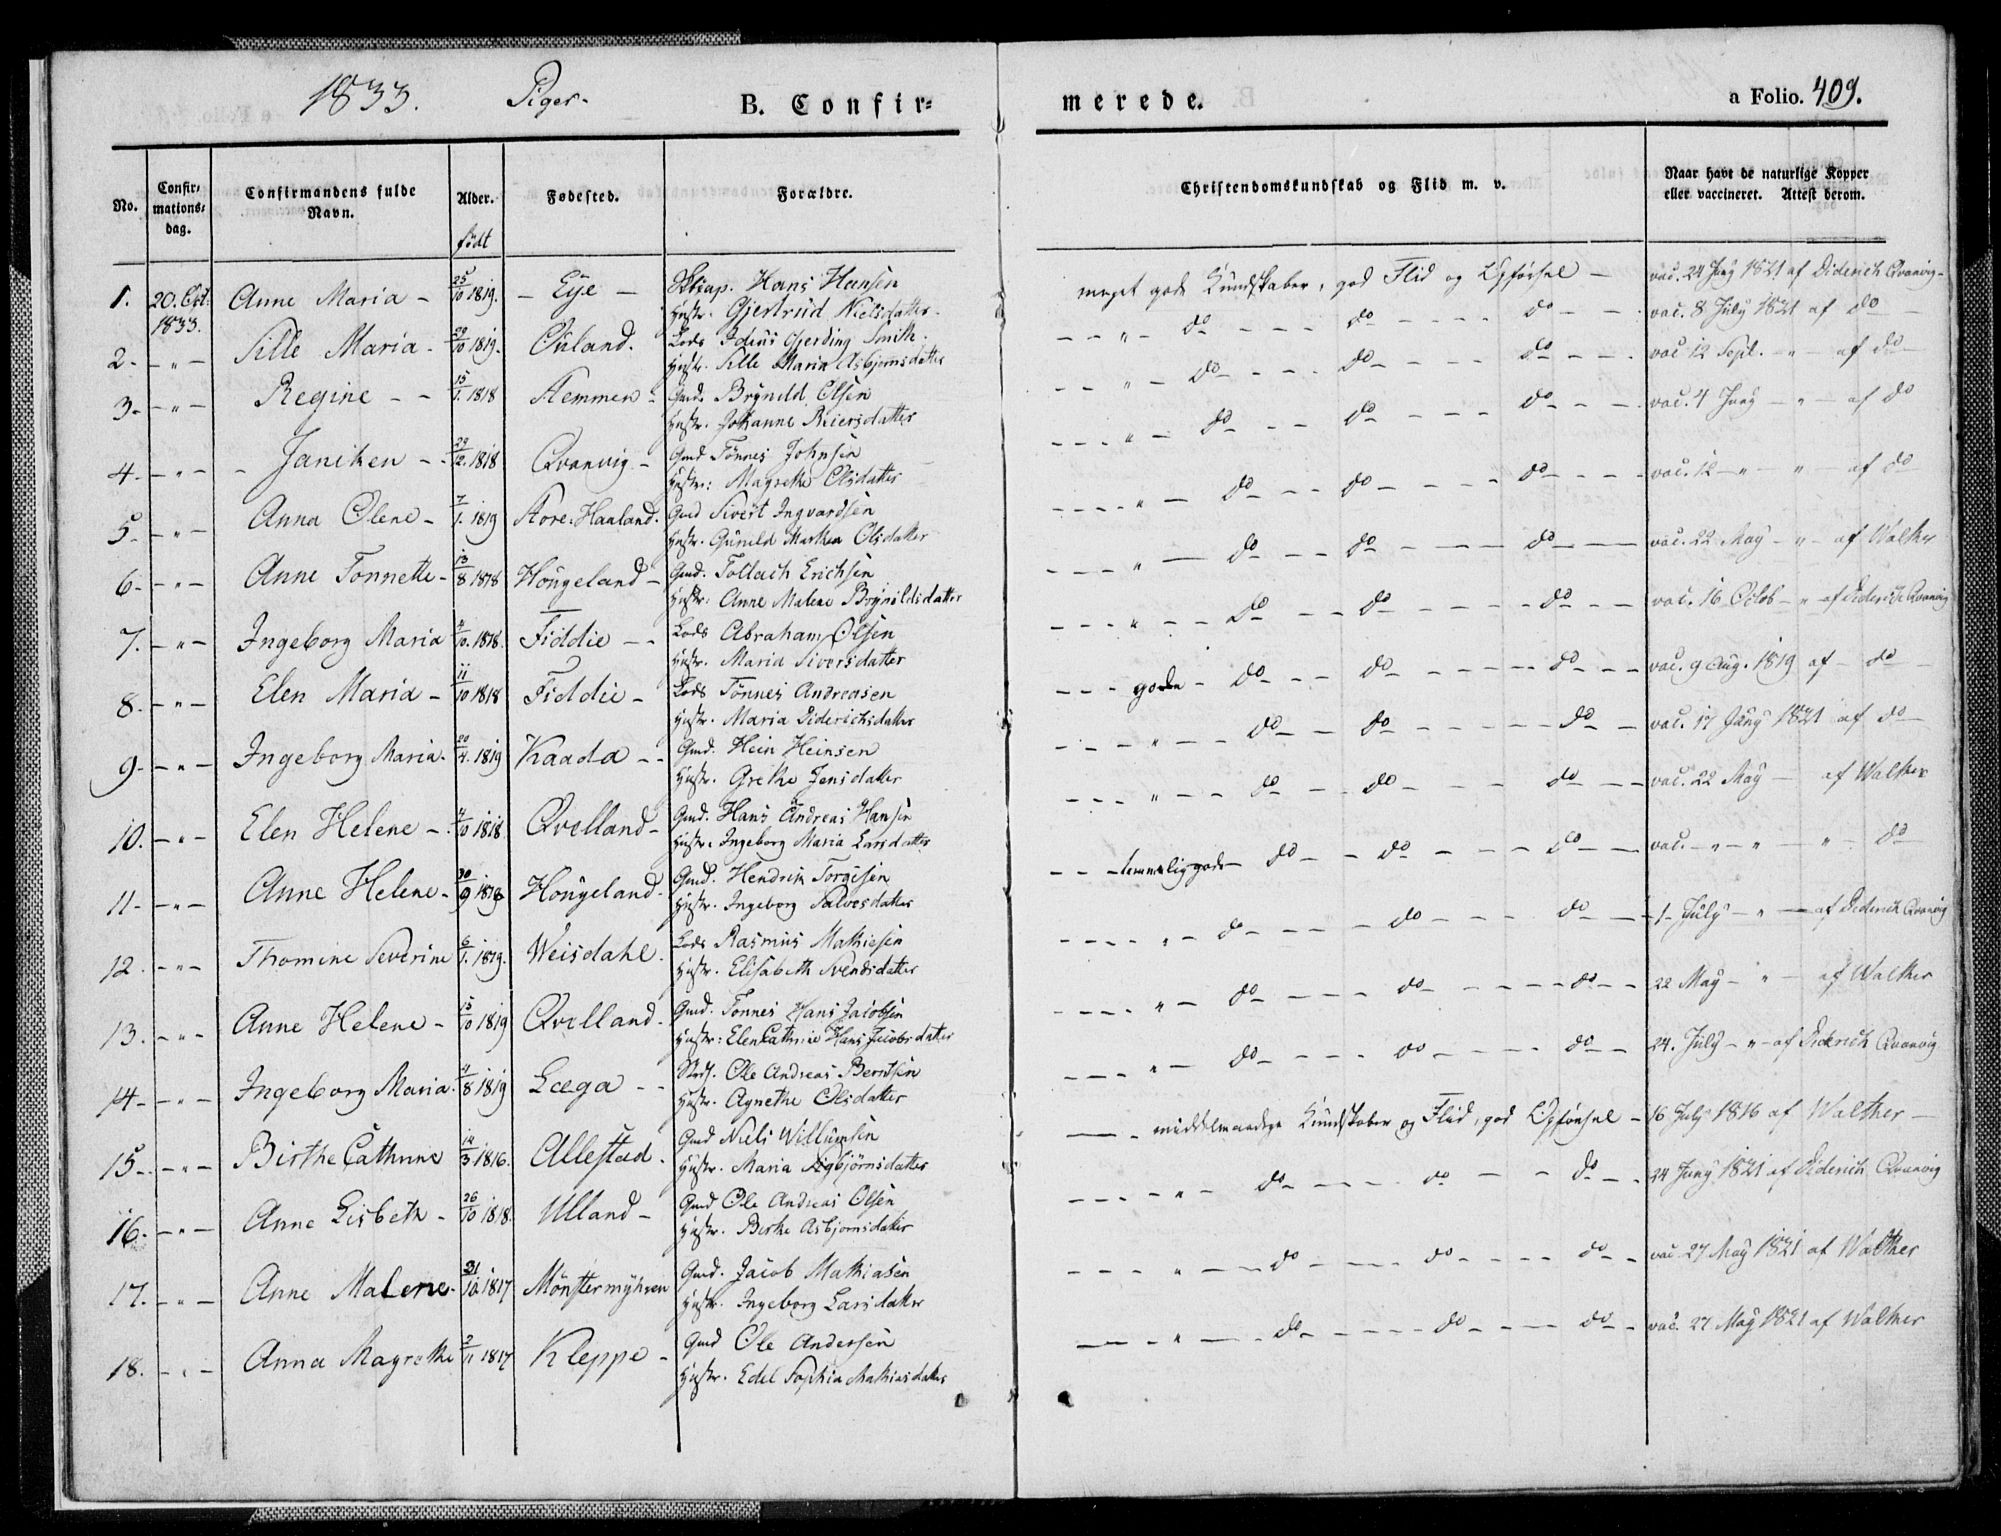 1833. Piger. B. Confir=
No. Confir= mations= dag. Confirmandens fulde Navn. Alder. födt Fødested. Forældre.
1. 20. Oct. 1833. Anne Maria - 25/10 1819. - Eye - Hans Hansen
Hustr. Gjertrud Nielsdatter.
2. - " - Sille Maria - 29/10 1819. Ouland. Lods Gjerding Smith.
Hustr. Sille Maria Asbjornsdatter
3. - " - Regine - - 15/1. 1818 Stemmen - Gmd. Brynild Olsen
Hustr. Johanne Reiersdatter
4. - " - - Janiken - - 29/12. 1818 Qvanvig - Gmd Tönnes Johnsen
Hustr: Magrethe Olsdatter
5. - " - Anna Olene - 7/1. 1819 Store-Haaland. Gmd Sivert Ingvardsen
Hustr. Gunild Marthea Olsdatter
6. - " - Anne Tonnette - 13/8 1818 Hougeland - Gmd. Tollach Erichsen
Hustr: Anne Malene Brynildsdatter
7. - " - Ingeborg Maria 4/10. 1818. Fiddie - - Lods Abraham Olsen
Hustr. Maria Siversdatter
8. - " - Elen Maria - 11/10 1818 Fiddie - Lods Tönnes Andreasen
Hustr. Maria Diderichsdatter
9. - " - Ingeborg Maria. 20/4. 1819 Kaada - - Gmd. Hein Heinsen
Hustr. Grethe Jensdatter
10. - " - Elen Helene - 4/10 1818 Qvelland - Gmd. Hans Andreas Hansen
Hustr. Ingeborg Maria Larsdatter
11. - " - Anne Helene - 30/9 1818 Hougeland - Gmd. Hendrik Torgisen
Hustr. Ingeborg Salvesdatter
12. - " - Thomine Severine 6/1. 1819. Weisdahl. Lods Rasmus Mathiesen
Hustr. Elisabeth Svendsdatter
13. - " - Anne Helene - 15/10 1819 Qvelland - Gmd. Tonnes Hans Jacobsen
Hustr: Elen Cathrine Hans Jacobsdatter
14 - - " - Ingeborg Maria. 4/8 1819 Læga - - Ole Andreas Berntsen
Hustr. Agnethe Olsdatter
15. - " - Birthe Cathrine 14/3 1816. Allestad. Gmd Niels Willumsen
Hustr. Maria Sigbjörnsdatter
16. - " - Anne Lisbeth - 26/10 1818. Ulland - Gmd Ole Andreas Olsen
Hustr. Birthe Asbjornsdatter
17. - " - Anne Malene - 31/10 1817 Mönstermyhren Gmd. Jacob Mathiasen
Hustr. Ingeborg Larsdatter
18. - " - Anna Magrethe 2/11 1817 Kleppe - Gmd Ole Andersen
Hustr. Edel Sophia Mathiasdatter
merede. a Folio. 409.
Christendomskundskab og Flid m. v. Naar havt de naturlige Kopper eller vaccineret. Attest derom.
meget gode Kundskaber, god Flid og Opførsel - vac. 24 Juny 1821 af Diderich Qvanvig -
- - " - do - - - do - - - do - - vac. 8 July 1821 af do -
- - " - do - - - do - - - do - - vac 12 Sept. - " - af do -
- - - " - do - - do - - - do - - vac. 4 Juny - " - af do
- - - - " - do - - do - - - do - - - vac. 12 - " - " - af do
- - - - " - do - - do - - - do - - vac. 22 May - " - af Walther
- - - - " - - do - - do - - - - do - - vac. 16 Octob - " af Diderich Qvanvig
- - - gode - do - - do - - - - do - - vac. 9 Aug. 1819 af - do -
- - - - " - - do - - do - - - - do - vac. 17 Juny 1821 af do -
- - - - " - - do - - do - - - do - - vac. 22 May - af Walther
- - - temmelig gode - do - - do - - - do - - vac. - " - " - " - do -
- - - - " - do - - - do - - - do - - 1 - July - " - af Diderich Qvanvig
- - - - " - do - - - do - - - - do - - 22 May - " - af Walther
- - - - " - do - - - do - - - do - - 24. July - " - af Diderich Qvanvig
- - - middelmaadige Kundskaber og Flid, god Opførsel - 16 July 1816 af Walther -
- - - - " - do - - - do - - do - - 24 Juny 1821 af Diderich Qvanvig
- - - - " - do - - - do - - - do - - vac 27 May 1821 af Walther
- - " - do - - - do - - - do - - vac. 27 May 1821 af Walther